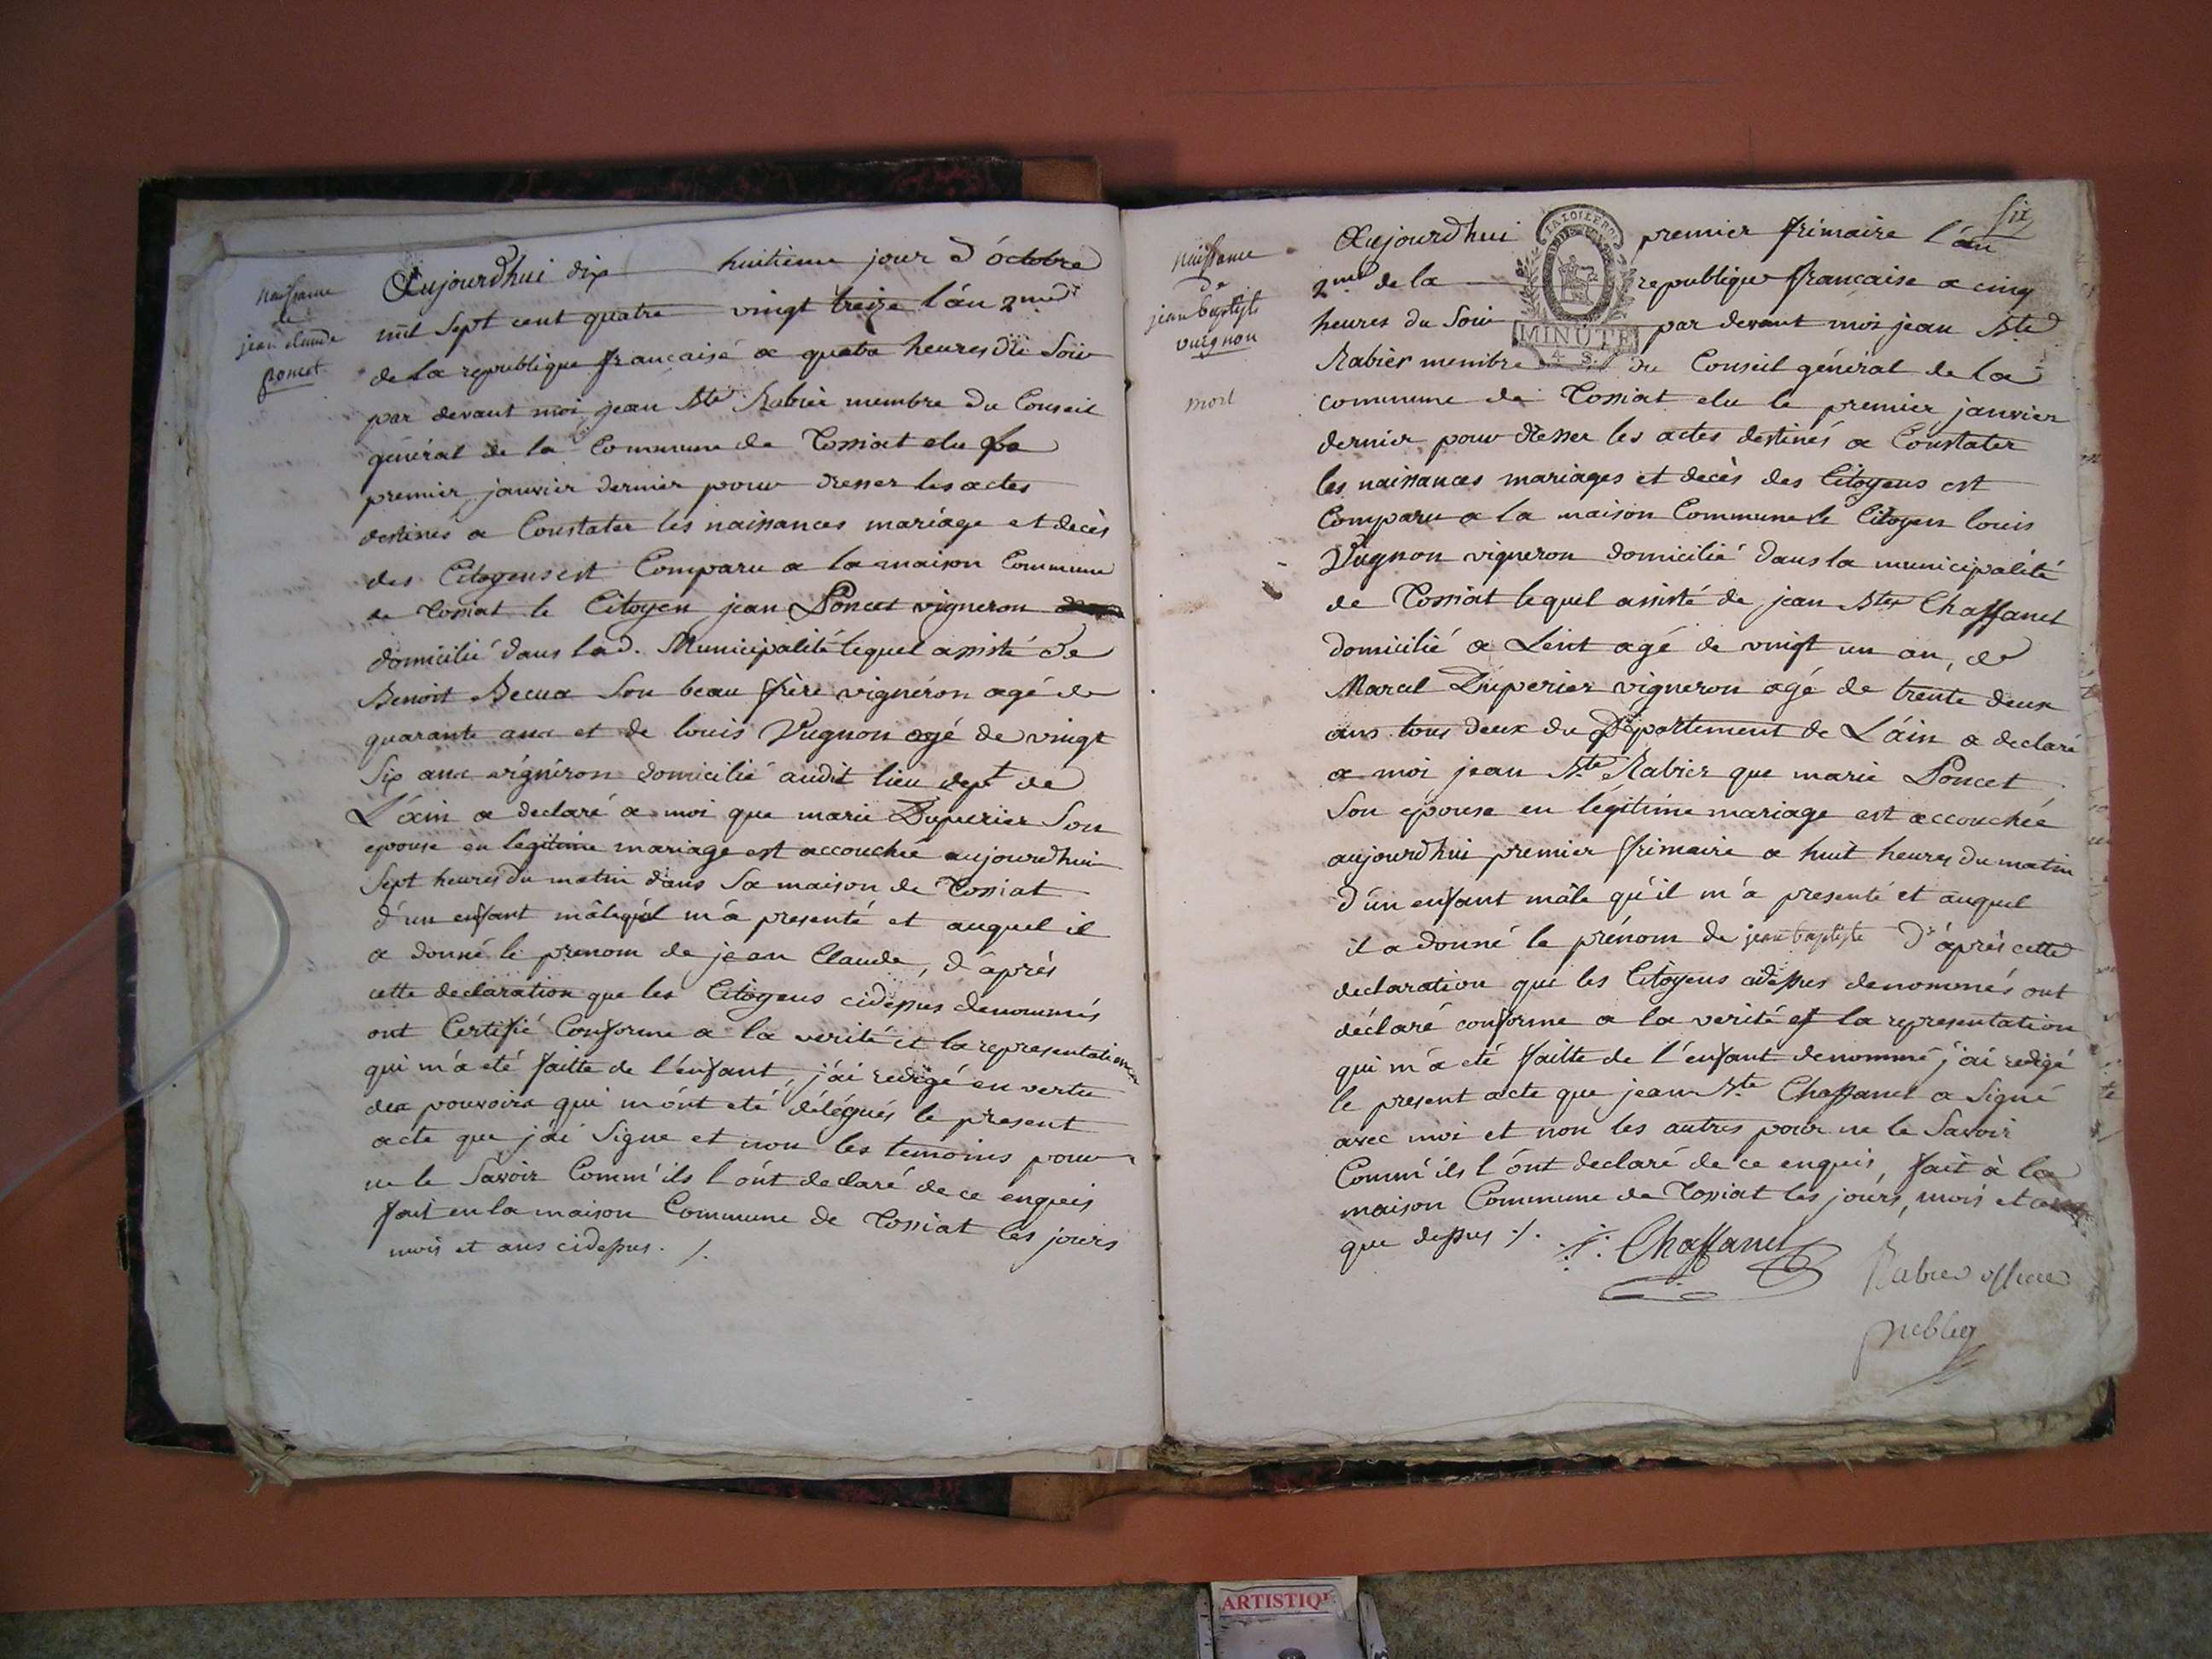 naissance
de
jean claude
poncet
Aujourdhui dix huitieme jour d'óctobre
mil sept cent quatre vingt treize l'án 2me
de la republique francaise a quatre heures du soir
par devant moi jean Bte Rabier membre du Conseil
général de la Commune de Tossiat elu le
premier janvier dernier pour dresser les actes
destinés a Constater les naissances mariage et decès
des Citoyens est Comparu a la maison Commune
de Tossiat le Citoyen jean Poncet vigneron
domicilié dans lad. Municipalité lequel assisté de
Benoit Becua son beau frère vignéron agé de
quarante ans et de louis Vugnon agé de vingt
six ans vignéron domicilié audit lieu dept de
L'áin a declaré a moi que marie Duperier son
epouse en legitime mariage est accouchée aujourdhui
sept heures du matin dans sa maison de Tossiat
d'un enfant mâle qúil m'a presenté et auquel il
a donné le prenom de jean Claude, d'áprès
cette declaration que les Citoyens cidessus denommés
ont Certifié Conforme a la verité et la representation
qui m'a eté faitte de l'énfant, j'ái redigé en vertu
des pouvoirs qui m'ónt eté délégués le present
acte que j'ái signe et non les temoins pour
ne le Savoir Comm'ils l'ónt declaré de ce enquis
fait en la maison Commune de Tossiat les jours
mois et ans cidessus ./.
six
naissance
de
jean baptiste
vuignon
mort
Aujourdhui premier frimaire l'án
2me de la republique francaise a cinq
heures du Soir par devant moi jean Bte
Rabier membre du Conseil général de la
commune de Tossiat elu le premier janvier
dernier pour dresser les actes destinés a Constater
les naissances mariages et decès des Citoyens est
Comparu a la maison Commune le Citoyen louis
Vugnon vigneron domicilié dans la municipalité
de Tossiat lequel assisté de jean Bte Chaffanel
domicilié a Lent agé de vingt un an, de
Marcel Duperier vigneron agé de trente deux
ans tous deux du Département de L'áin a declaré
a moi jean Bte Rabier que marie Poncet
son epouse en légitime mariage est accouchée
aujourdhui premier frimaire a huit heures du matin
d'ún enfant mâle qu'il m'a presenté et auquel
il a donné le prénom de jean baptiste D'áprès cette
declaration que les Citoyens cidessus denommés ont
déclaré conforme a la verité et la representation
qui m'a eté faitte de l'enfant denommé j'ai redigé
le present acte que jean Bte Chaffanel a Signé
avec moi et non les autres pour ne le Savoir
Comm'ils l'ónt declaré de ce enquis, fait à la
maison Commune de Tossiat les jours, mois et an
que dessus ./.
Chaffanel
Rabier officier
publiq
LA LOI LE ROI
MINUTE
4 S.
ARTISTIQU